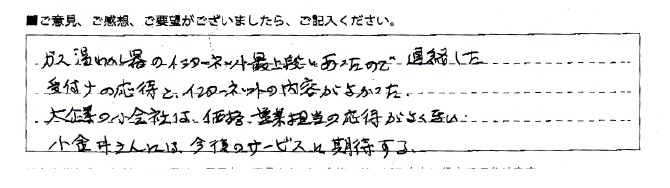 ■ご意見、ご感想、ご要望がございましたら、ご記入ください。
ガス湯わかし器のインターネット最上段にあったので連絡した
受付ナの応待と、インターネットの内容がよかった.
大企業の小会社は、価格、営業担当の応待がよくない
小金井さんには、今後のサービスに期待する.